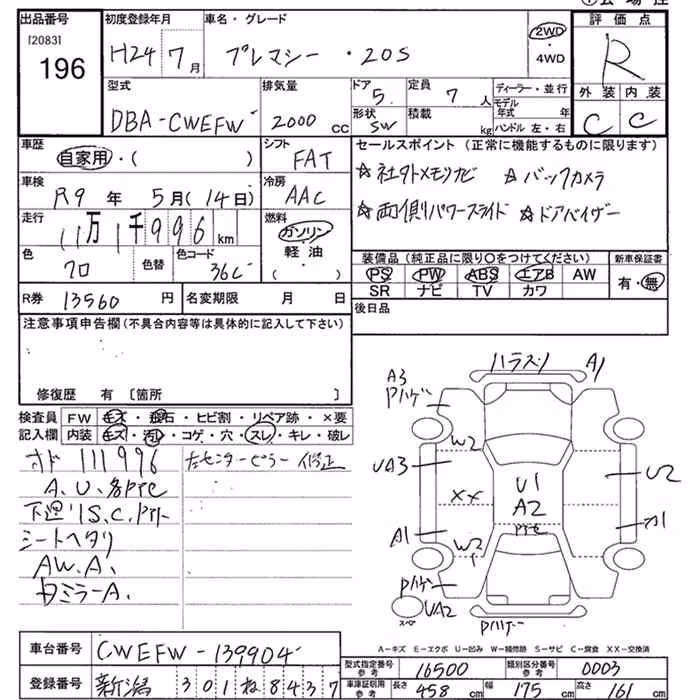 出品番号
[2083]
196
初度登録年月
H24 7月
車名・グレード
プレマシー ・20S
2WD
・
4WD
評価点
R
外装 内装
C C
型式
DBA-CWEFW
排気量
2000 CC
ドア
5
形状
SW
定員
7 人
積載
kg
ディーラー・並行
モデル年式 年
ハンドル 左・右
車歴
自家用・( )
シフト
FAT
車検
R9年 5月(14日)
冷房
AAC
走行
11万1千996 km
燃料
ガソリン
軽油
( )
色
クロ
色替
色コード
36C
R券 13560 円
名変期限 月 日
セールスポイント (正常に機能するものに限ります)
☆社外メモリナビ ☆バックカメラ
☆両側パワースライド ☆ドアバイザー
装備品 (純正品に限り○をつけてください)
新車保証書
PS PW ABS エアB AW
有・無
SR ナビ TV カワ
後日品
注意事項申告欄 (不具合内容等は具体的に記入して下さい)
修復歴 有 [箇所 ]
検査員
記入欄
FW キズ・飛石・ヒビ割・リペア跡・×要
内装 キズ・汚レ・コゲ・穴・スレ・キレ・破レ
オド 111996
左センターピラー修正
A.U.各PTE
下廻リS.C.
シートヘタリ
AW.A.
ミラーA.
A3
Pハゲ
A1
W2
UA3
U2
U1
XX
A2
A1
A1
W2
Pハゲ
UA2
スペア
Pハゲ
A-キズ E-エクボ U-凹み W-補修跡 S-サビ C-腐食 XX-交換済
車台番号 CWEFW-139904
登録番号 新潟 301ね8437
型式指定番号
参考
16500
類別区分番号
参考
0003
車庫証明用
参考
長さ 458 cm 幅 175 cm 高さ 161 cm